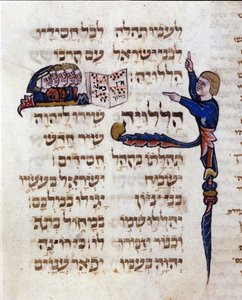 לעמו תהלה לכל חסידיו
לבני ישראל עם קרבו
הללויה
הללויה שירו ליהוה
שיר חדש
תהלתו בקהל חסידים
ישמח ישראל בעשיו
בני ציון יגילו במלכם
יהללו שמו במחול בתף
וכנור יזמרו לו כי רוצה
יהוה בעמו יפאר ענוים